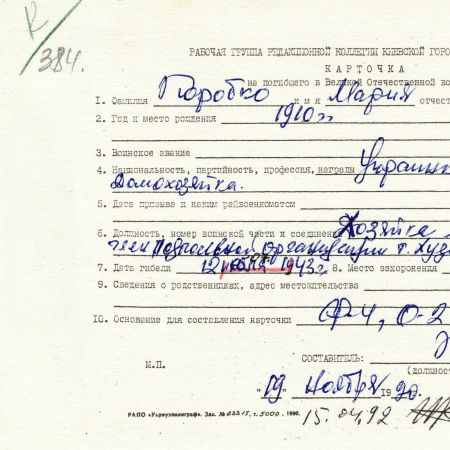 К
384.
РАБОЧАЯ ГРУППА РЕДАКЦИОННОЙ КОЛЛЕГИИ КИЕВСКОЙ ГОРО
КАРТОЧКА
на погибшего в Великой Отечественной во
1. Фамилия Коробко имя Мария отчест
2. Год и место рождения 1910г
3. Воинское звание
4. Национальность, партийность, профессия, награды Украин
Домохозяйка.
5. Дата призыва и каким райвоенкоматом
6. Должность, номер воинской части и соединения Хозяйка
член подпольной организации г. Худ
7. Дата гибели 12 1943 г 8. Место захоронения
9. Сведения о родственниках, адрес местожительства
10. Основание для составления карточки Ф-4, О-2
М.П.
СОСТАВИТЕЛЬ:
(должност
"19" Ноября 1990.
РАПО «Укрвузполиграф». Зак. № 03317, т. 5000, 1990.
15.04.92